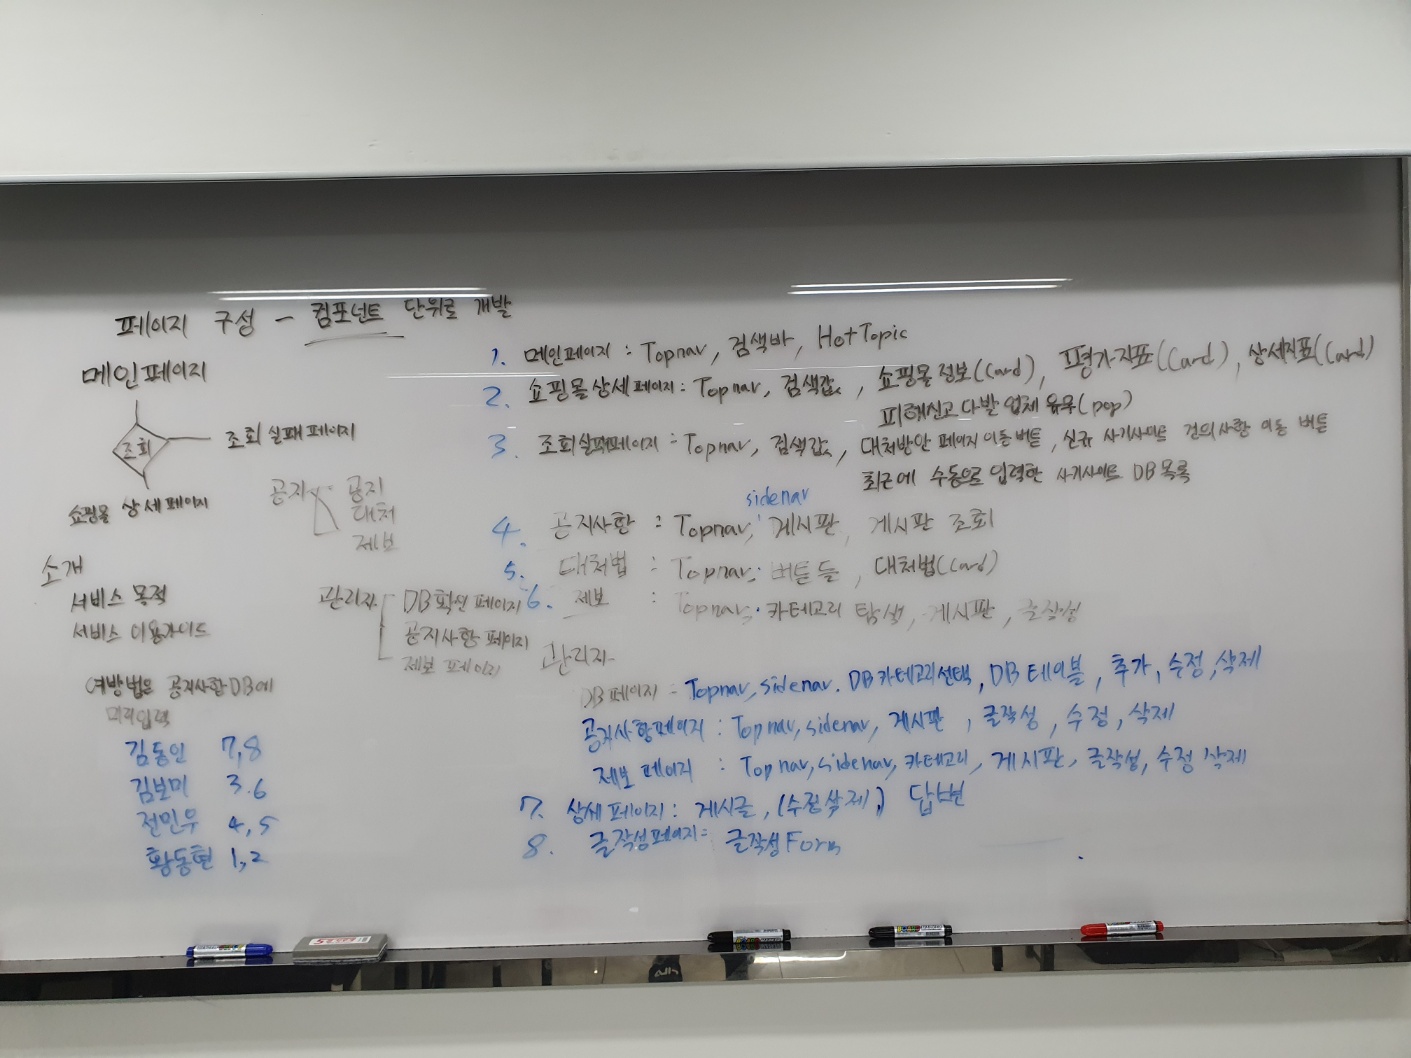 페이지 구성 - 컴포넌트 단위로 개발
메인페이지
조회
조회 실패 페이지
쇼핑몰 상세페이지
공지
공지
대처
제보
소개
서비스 목적
서비스 이용가이드
관리자
DB 확인 페이지
공지사항 페이지
제보 페이지
예방법은 공지사항 DB에
미리입력
김동인 7,8
김보미 3.6
전민우 4,5
황동현 1,2
1. 메인페이지 : Topnav, 검색바, HotTopic
2. 쇼핑몰 상세페이지 : Topnav, 검색값, 쇼핑몰 정보(Card), 평가지표(Card), 상세지표(Card)
피해신고 다발 업체 유무(pop)
3. 조회실패페이지 : Topnav, 검색값, 대처방안 페이지 이동버튼, 신규 사기사이트 건의사항 이동 버튼
최근에 수동으로 입력한 사기사이트 DB 목록
sidenav
4. 공지사항 : Topnav, 게시판, 게시판 조회
5. 대처법 : Topnav, 버튼들, 대처법(Card)
6. 제보 : Topnav, 카테고리 탐색, 게시판, 글작성
관리자
DB 페이지 : Topnav, sidenav. DB카테고리선택, DB 테이블, 추가, 수정, 삭제
공지사항페이지 : Topnav, sidenav, 게시판, 글작성, 수정, 삭제
제보 페이지 : Topnav, sidenav, 카테고리, 게시판, 글작성, 수정 삭제
7. 상세페이지 : 게시글, (수정삭제,) 답변
8. 글작성페이지 : 글작성 Form